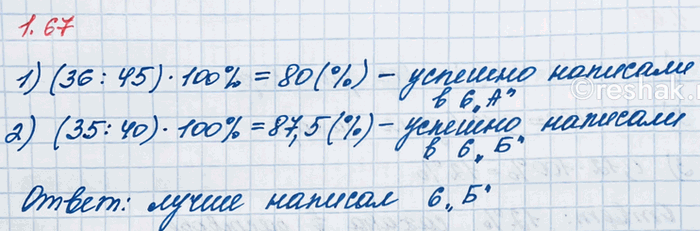 1.67
1) (36 : 45) · 100% = 80 (%) – успешно написали
в 6 „А"
2) (35 : 40) · 100% = 87,5 (%) – успешно написали
в 6 „Б"
Ответ: лучше написал 6 „Б"
©reshak.ru